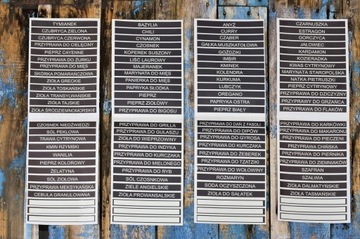 TYMIANEK
CZUBRYCA ZIELONA
CZUBRYCA CZERWONA
PRZYPRAWA DO CIELĘCINY
PIEPRZ CAYENNE
PRZYPRAWA DO ŻURKU
PRZYPRAWA DO MIĘS
SKÓRKA POMARAŃCZOWA
ZIOŁA GRECKIE
ZIOŁA TOSKAŃSKIE
ZIOŁA TRANSYLWAŃSKIE
ZIOŁA WŁOSKIE
ZIOŁA ŚRÓDZIEMNOMORSKIE
CZOSNEK NIEDŹWIEDZI
SÓL PEKLOWA
TRAWA CYTRYNOWA
KMIN RZYMSKI
WANILIA
PIEPRZ KOLOROWY
ŻELATYNA
SÓL ZIOŁOWA
PRZYPRAWA MEKSYKAŃSKA
CEBULA GRANULOWANA
BAZYLIA
CHILI
CYNAMON
CZOSNEK
KOPEREK SUSZONY
LIŚĆ LAUROWY
MAJERANEK
MARYNATA DO MIĘS
PAPRYKA OSTRA
PAPRYKA SŁODKA
PIEPRZ
PIEPRZ ZIOŁOWY
PRZYPRAWA DO BIGOSU
PRZYPRAWA DO GRILLA
PRZYPRAWA DO GULASZU
ZIOŁA DO WIEPRZOWINY
PRZYPRAWA DO INDYKA
PRZYPRAWA DO KURCZAKA
PRZYPRAWA DO MIELONEGO
PRZYPRAWA DO RYB
SÓL CZOSNKOWA
ZIELE ANGIELSKIE
ZIOŁA PROWANSALSKIE
ANYŻ
CURRY
CZĄBER
GAŁKA MUSZKATOŁOWA
GOŹDZIKI
IMBIR
KMINEK
KOLENDRA
KURKUMA
LUBCZYK
OREGANO
PAPRYKA OSTRA
PIEPRZ BIAŁY
PRZYPRAWA DO DAŃ Z FASOLI
PRZYPRAWA DO DIPÓW
PRZYPRAWA DO GYROSA
PRZYPRAWA DO KURCZAKA
PRZYPRAWA DO ŻEBEREK
PRZYPRAWA DO TZATZIKI
PRZYPRAWA DO WOŁOWINY
ROZMARYN
SODA OCZYSZCZONA
ZIOŁA DO SAŁATEK
CZARNUSZKA
ESTRAGON
GORCZYCA
JAŁOWIEC
KARDAMON
KOZIERADKA
KWAS CYTRYNOWY
MARYNATA STAROPOLSKA
NATKA PIETRUSZKI
PIEPRZ CYTRYNOWY
PRZYPRAWA DO DZICZYZNY
PRZYPRAWA DO DROBIU
PRZYPRAWA DO FLAKÓW
PRZYPRAWA DO KARKÓWKI
PRZYPRAWA DO MAKARONU
PRZYPRAWA CHIŃSKA
PRZYPRAWA DO PIERNIKA
PRZYPRAWA DO ZIEMNIAKÓW
SZAFRAN
SZAŁWIA
ZIOŁA DALMATYŃSKIE
ZIOŁA TASMAŃSKIE